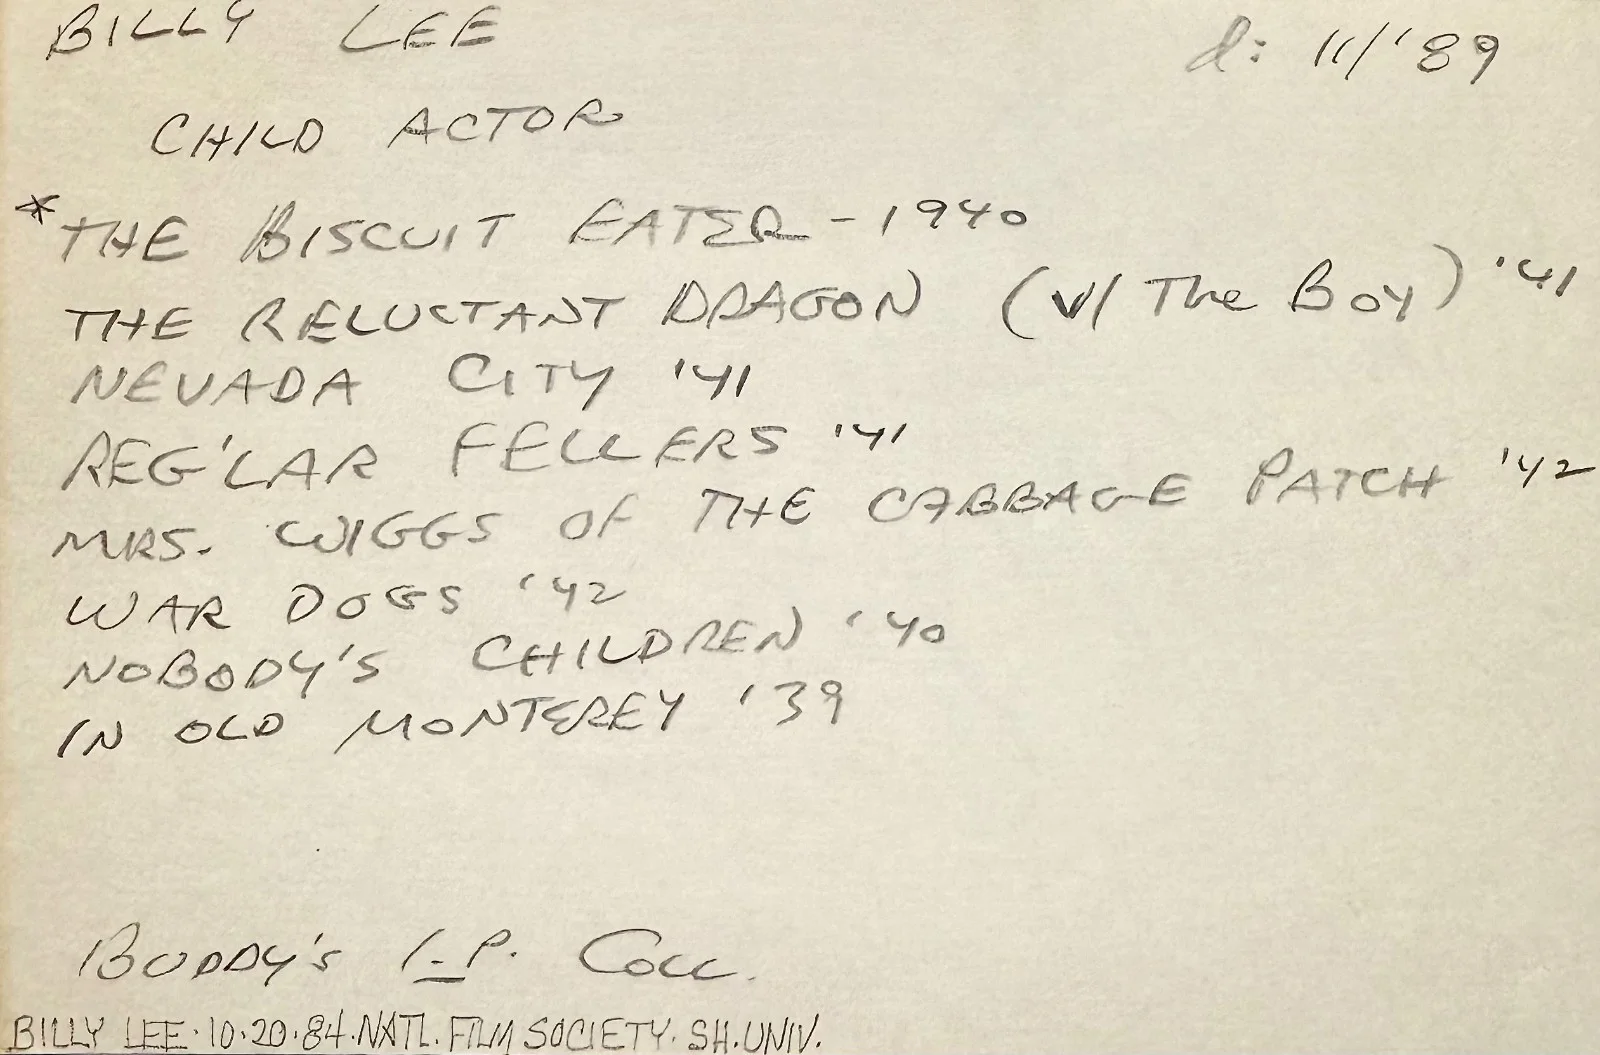 BILLY LEE d: 11/'89
CHILD ACTOR
*THE BISCUIT EATER - 1940
THE RELUCTANT DRAGON (V/ The Boy) '41
NEVADA CITY '41
REG'LAR FELLERS '41
MRS. WIGGS OF THE CABBAGE PATCH '42
WAR DOGS '42
NOBODY'S CHILDREN '40
IN OLD MONTEREY '39
BUDDY'S I.P. Coll.
BILLY LEE·10·20·84·NATL. FILM SOCIETY. SH.UNIV.